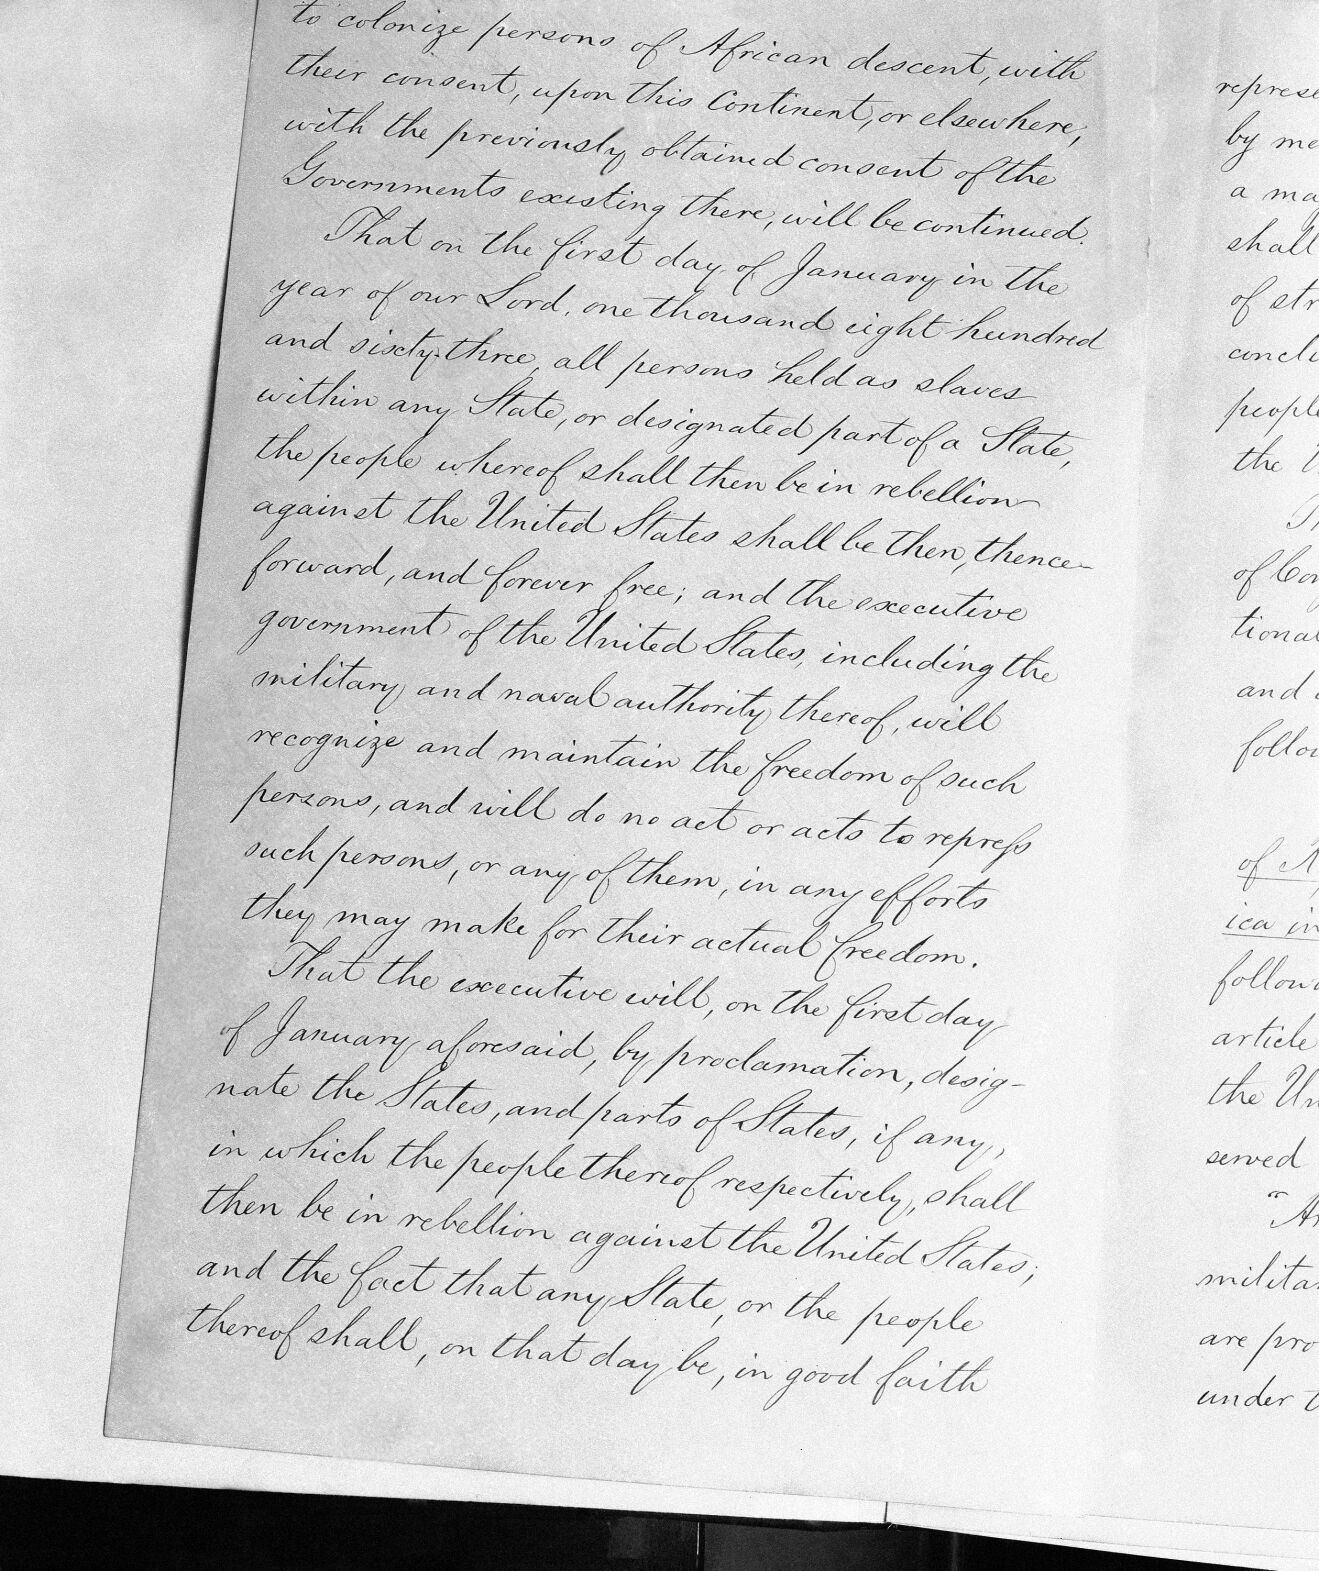 to colonize persons of African descent, with
their consent, upon this Continent, or elsewhere,
with the previously obtained consent of the
Governments existing there, will be continued.
That on the first day of January in the
year of our Lord, one thousand eight hundred
and sixty-three, all persons held as slaves
within any State, or designated part of a State,
the people whereof shall then be in rebellion
against the United States shall be then, thence-
forward, and forever free; and the executive
government of the United States, including the
military and naval authority thereof, will
recognize and maintain the freedom of such
persons, and will do no act or acts to repress
such persons, or any of them, in any efforts
they may make for their actual freedom.
That the executive will, on the first day
of January aforesaid, by proclamation, desig-
nate the States, and parts of States, if any,
in which the people thereof respectively, shall
then be in rebellion against the United States;
and the fact that any State, or the people
thereof shall, on that day be, in good faith
repres
by me
a ma
shall
of str
concl
people
the U
Th
of Con
tional
and
follow
of
ica in
follow
article
the Un
served
"Ar
milita
are pro
under t